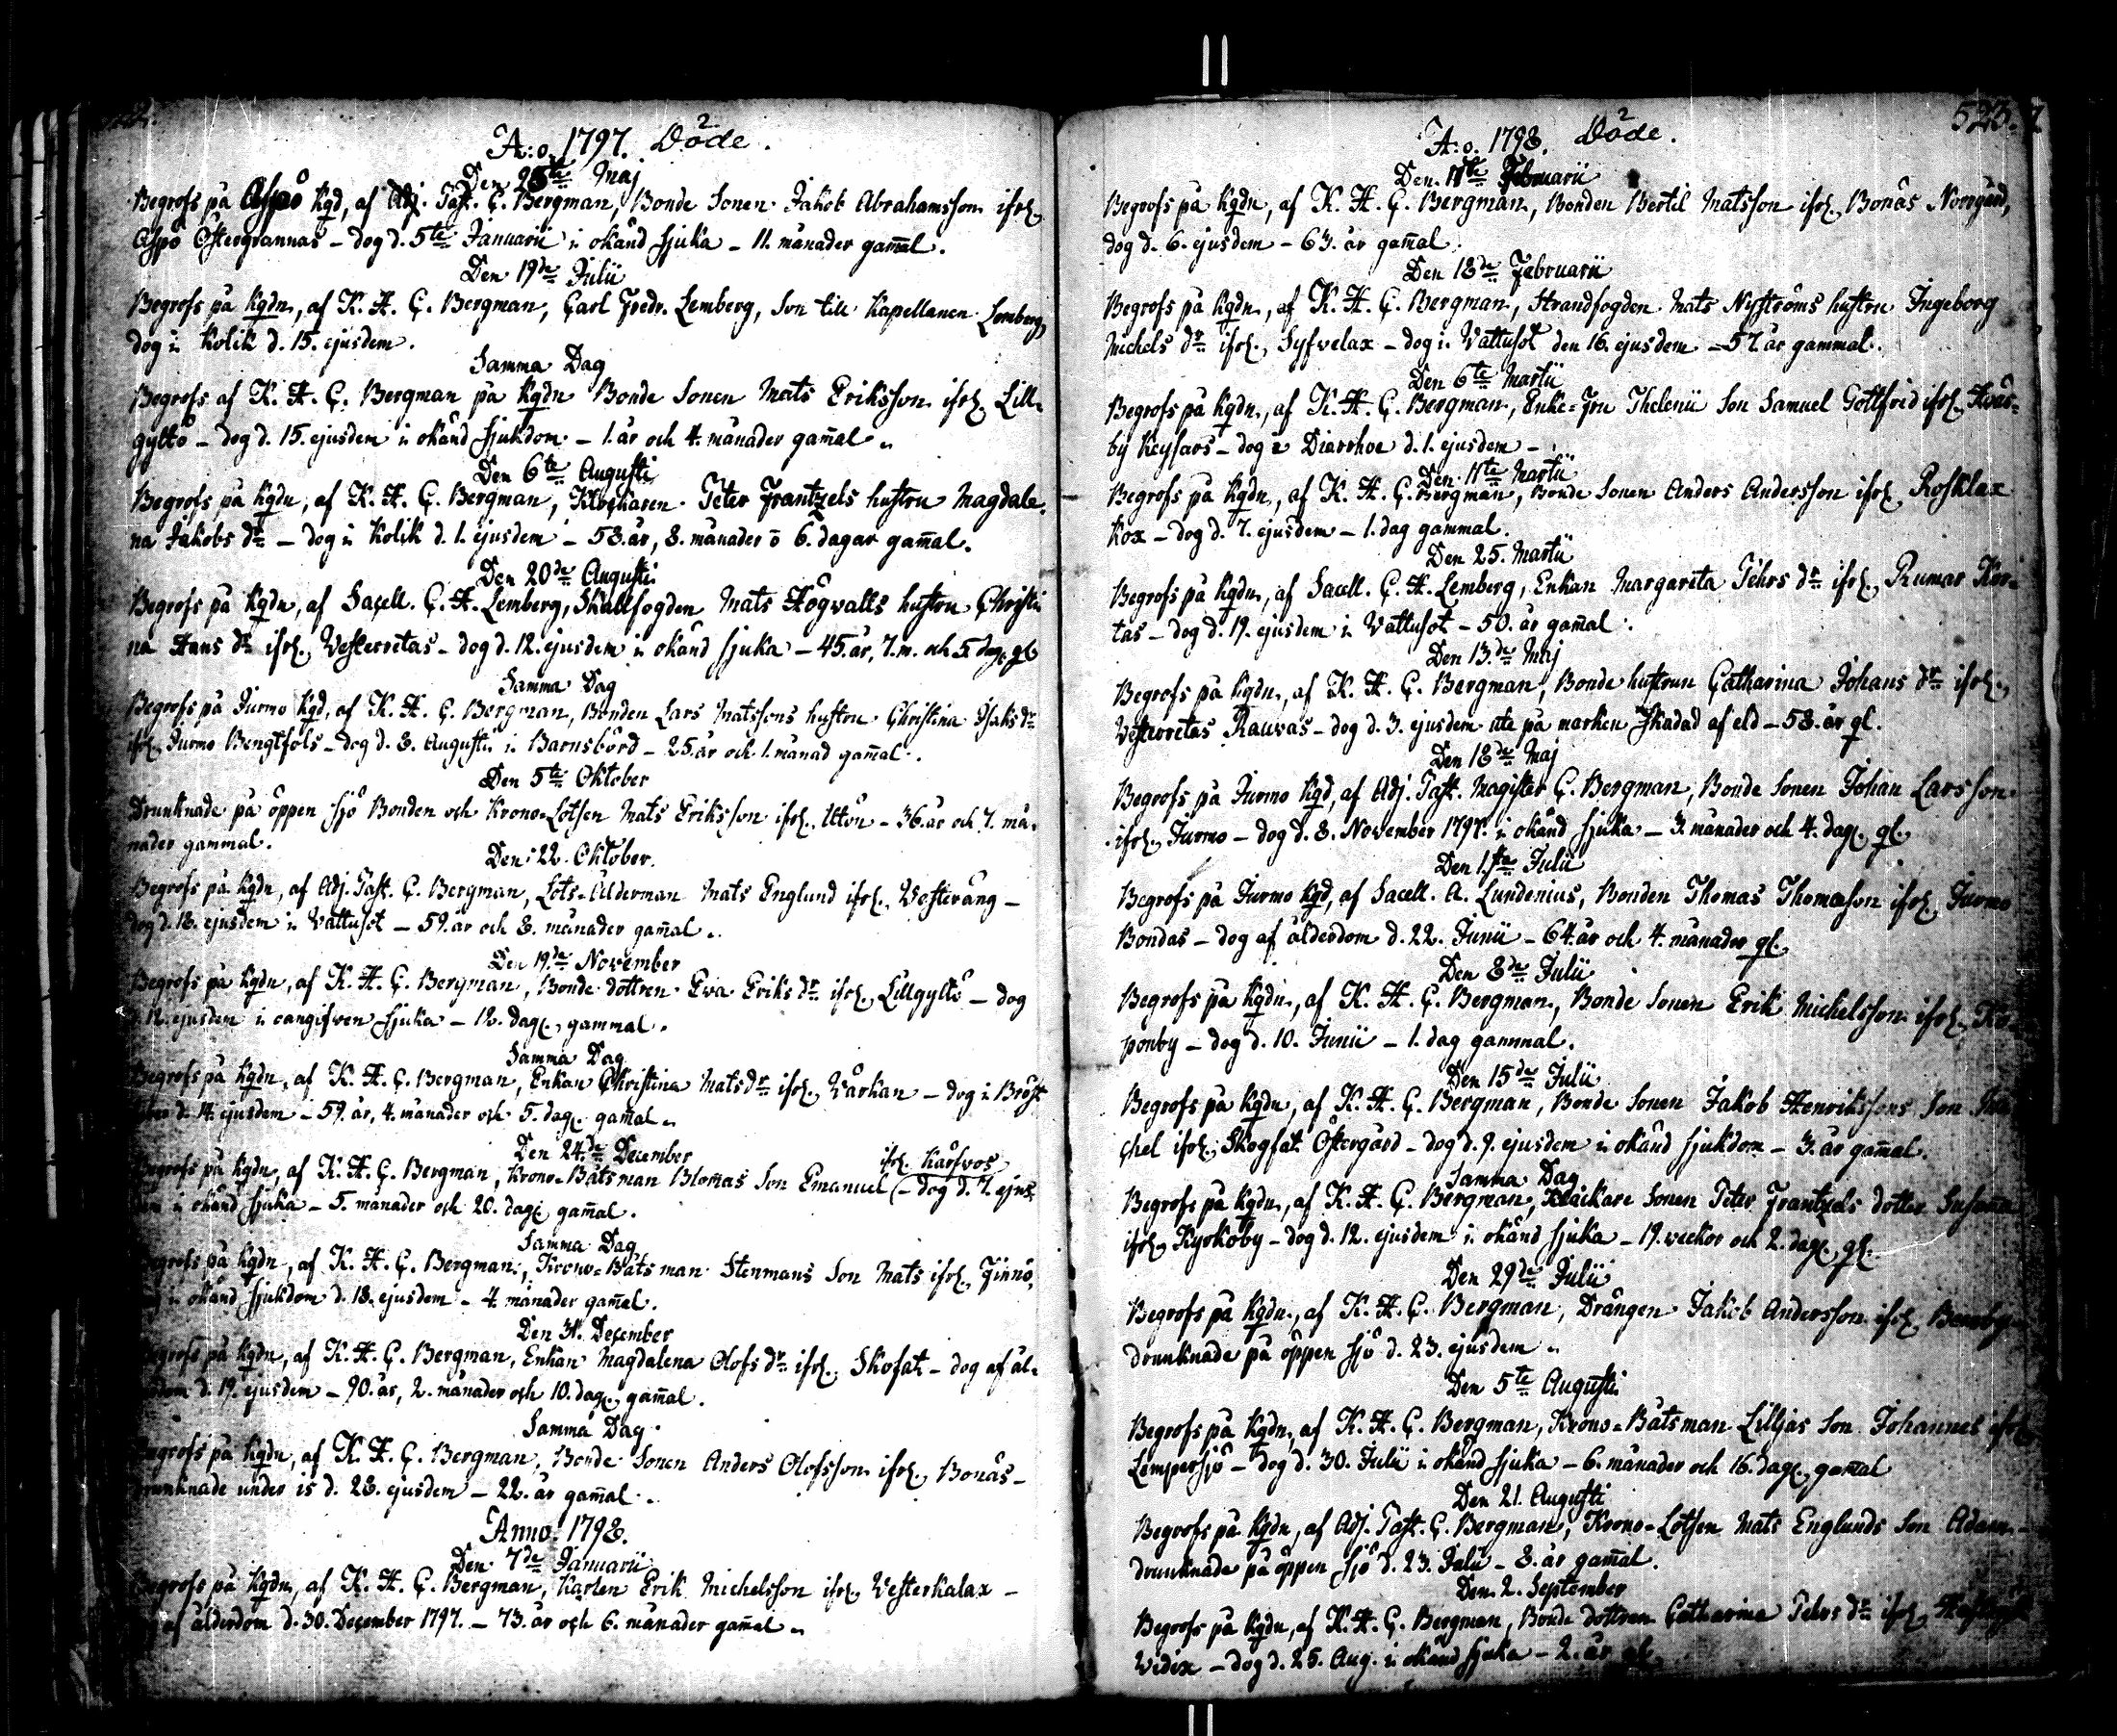 A:o. 1797. Döde. 2
Den 25te Maj
Begrofs på Aspö Kgd, af Adj. Past. C. Bergman, Bonde Sonen Jakob Abrahamsson ifrå.
Aspö Östergrannas – dog d. 5te Januarii i okänd sjuka – 11. månader gam̄al.
Den 19de Julii
Begrofs på Kgdn, af K. H. C. Bergman, Carl Fredr. Lemberg, Son till Kapellanen Lemberg,
dog i Kolik d. 15. ejusdem.
Samma Dag
Begrofs af K. H. C. Bergman på Kgdn Bonde Sonen Mats Eriksson ifrå. Lill-
gyltö – dog d. 15. ejusdem i okänd sjukdom – 1. år och 4. månader gam̄al.
Den 6te Augusti
Begrofs på Kgdn, af K. H. C. Bergman, Peter Frantzels hustru Magdale-
na Jakobs dr – dog i Kolik d. 1. ejusdem – 58. år, 8. månader o 6. dagar gam̄al.
Den 20de Augusti
Begrofs på Kgdn, af Sacell. C. H. Lemberg, Skallfogden Mats Högvalls hustru Christi-
na Hans dr ifrå. Vesterretas – dog d. 12. ejusdem i okänd sjuka – 45. år, 7. m. och 5 dag. gl.
Samma Dag
Begrofs på Jurmo Kgd, af K. H. C. Bergman, Bonden Lars Matssons hustru Christina Isaks dr
ifrå. Jurmo Bengtsols – dog d. 8. Augusti i Barnsbörd – 25. år och 1. månad gam̄al.
Den 5te Oktober
Drunknade på öppen sjö Bonden och Krono-Lotsen Mats Eriksson ifrå. Utön – 36. år och 7. må-
nader gammal.
Den 22. Oktober.
Begrofs på Kgdn, af Adj. Past. C. Bergman, Lots-Ålderman Mats Englund ifrå. Vesterång –
dog d. 18. ejusdem i Vattusot – 59. år och 8. månader gam̄al.
Den 19de November
Begrofs på Kgdn, af K. H. C. Bergman, Bonde dottren Eva Eriks dr ifrå. Lillgyltö – dog
d. 12. ejusdem i oangifven sjuka – 12. dag. gammal.
Samma Dag
Begrofs på Kgdn, af K. H. C. Bergman, Enkan Christina Mats dr ifrå. Wårkan – dog i Bröst
d. 14. ejusdem – 59. år, 4. månader och 5. dag. gam̄al.
Den 24de December
ifrå. Karsvos
Begrofs på Kgdn, af K. H. C. Bergman, Krono-Båtsman Blomas Son Emanuel – dog d. 7. ejus-
dem i okänd sjuka – 5. månader och 20. dag. gam̄al.
Samma Dag
Begrofs på Kgdn, af K. H. C. Bergman, Krono-Båtsman Stenmans Son Mats ifrå. Finnö,
dog i okänd sjukdom d. 18. ejusdem – 4. månader gam̄al.
Den 31. December
Begrofs på Kgdn, af K. H. C. Bergman, Enkan Magdalena Olofs dr ifrå. Skofat – dog af ål-
derdom d. 19. ejusdem – 90. år, 2. månader och 10. dag. gam̄al.
Samma Dag
Begrofs på Kgdn, af K. H. C. Bergman, Bonde Sonen Anders Olofsson ifrå. Bonäs –
drunknade under is d. 28. ejusdem – 22. år gam̄al.
Anno 1798.
Den 7de Januarii
Begrofs på Kgdn, af K. H. C. Bergman, Karlen Erik Michelsson ifrå. Vesterkalax –
af ålderdom d. 30. December 1797. – 73. år och 6. månader gam̄al.
523.
A:o. 1798. Döde. 2
Den 11te Februarii
Begrofs på Kgdn, af K. H. C. Bergman, Bonden Bertil Matsson ifrå. Bonäs Norrgård,
dog d. 6. ejusdem – 63. år gam̄al.
Den 18de Februarii
Begrofs på Kgdn, af K. H. C. Bergman, Strandfogden Mats Nyströms hustru Ingeborg
Michels dr ifrå. Syfvelax – dog i Vattusot den 16. ejusdem – 57. år gammal.
Den 6te Martii
Begrofs på Kgdn, af K. H. C. Bergman, Enke-Fru Thelenii Son Samuel Gottfrid ifrå. Hväs-
by Keysars – dog i Diarrhoe d. 1. ejusdem –
Den 11te Martii
Begrofs på Kgdn, af K. H. C. Bergman, Bonde Sonen Anders Andersson ifrå. Rosklax
Kox – dog d. 7. ejusdem – 1. dag gammal.
Den 25. Martii
Begrofs på Kgdn, af Sacell. C. H. Lemberg, Enkan Margareta Pehrs dr ifrå. Rumar
tas – dog d. 19. ejusdem i Vattusot – 50. år gam̄al.
Den 13de Maj
Begrofs på Kgdn, af K. H. C. Bergman, Bonde hustrun Catharina Johans dr ifrå.
Vesterretas Rauvas – dog d. 3. ejusdem ute på marken skadad af eld – 58. år gl.
Den 18de Maj
Begrofs på Jurmo Kgd, af Adj. Past. Magister C. Bergman, Bonde Sonen Johan Larsson
ifrå. Jurmo – dog d. 8. November 1797. i okänd sjuka – 3. månader och 4. dag. gl.
Den 1sta Julii
Begrofs på Jurmo Kgd, af Sacell. A. Lundenius, Bonden Thomas Thomasson ifrå. Jurmo
Bondas – dog af ålderdom d. 22. Junii – 64. år och 4. månader gl.
Den 8de Julii
Begrofs på Kgdn, af K. H. C. Bergman, Bonde Sonen Erik Michelsson ifrå. Ko-
ponby – dog d. 10. Junii – 1. dag gammal.
Den 15de Julii
Begrofs på Kgdn, af K. H. C. Bergman, Bonde Sonen Jakob Henrikssons Son Mi-
chel ifrå. Skogfat Östergård – dog d. 9. ejusdem i okänd sjukdom – 3. år gam̄al.
Samma Dag
Begrofs på Kgdn, af K. H. C. Bergman, Klåckare Sonen Peter Frantzels dotter Susanna
ifrå. Kyrkoby – dog d. 12. ejusdem i okänd sjuka – 19. veckor och 2. dag. gl.
Den 29de Julii
Begrofs på Kgdn, af K. H. C. Bergman, Drängen Jakob Andersson ifrå.
drunknade på öppen sjö d. 23. ejusdem.
Den 5te Augusti
Begrofs på Kgdn, af K. H. C. Bergman, Krono-Båtsman Lilljas Son Johannes ifrå.
Lempersjö – dog d. 30. Julii i okänd sjuka – 6. månader och 16. dag. gam̄al
Den 21. Augusti
Begrofs på Kgdn, af Adj. Past. C. Bergman, Krono-Lotsen Mats Englunds Son Adam –
drunknade på öppen sjö d. 23. Julii – 8. år gam̄al.
Den 2. September
Begrofs på Kgdn, af K. H. C. Bergman, Bonde dottren Catharina Pehrs dr ifrå.
Widix – dog d. 25. Aug. i okänd sjuka – 2. år gl.